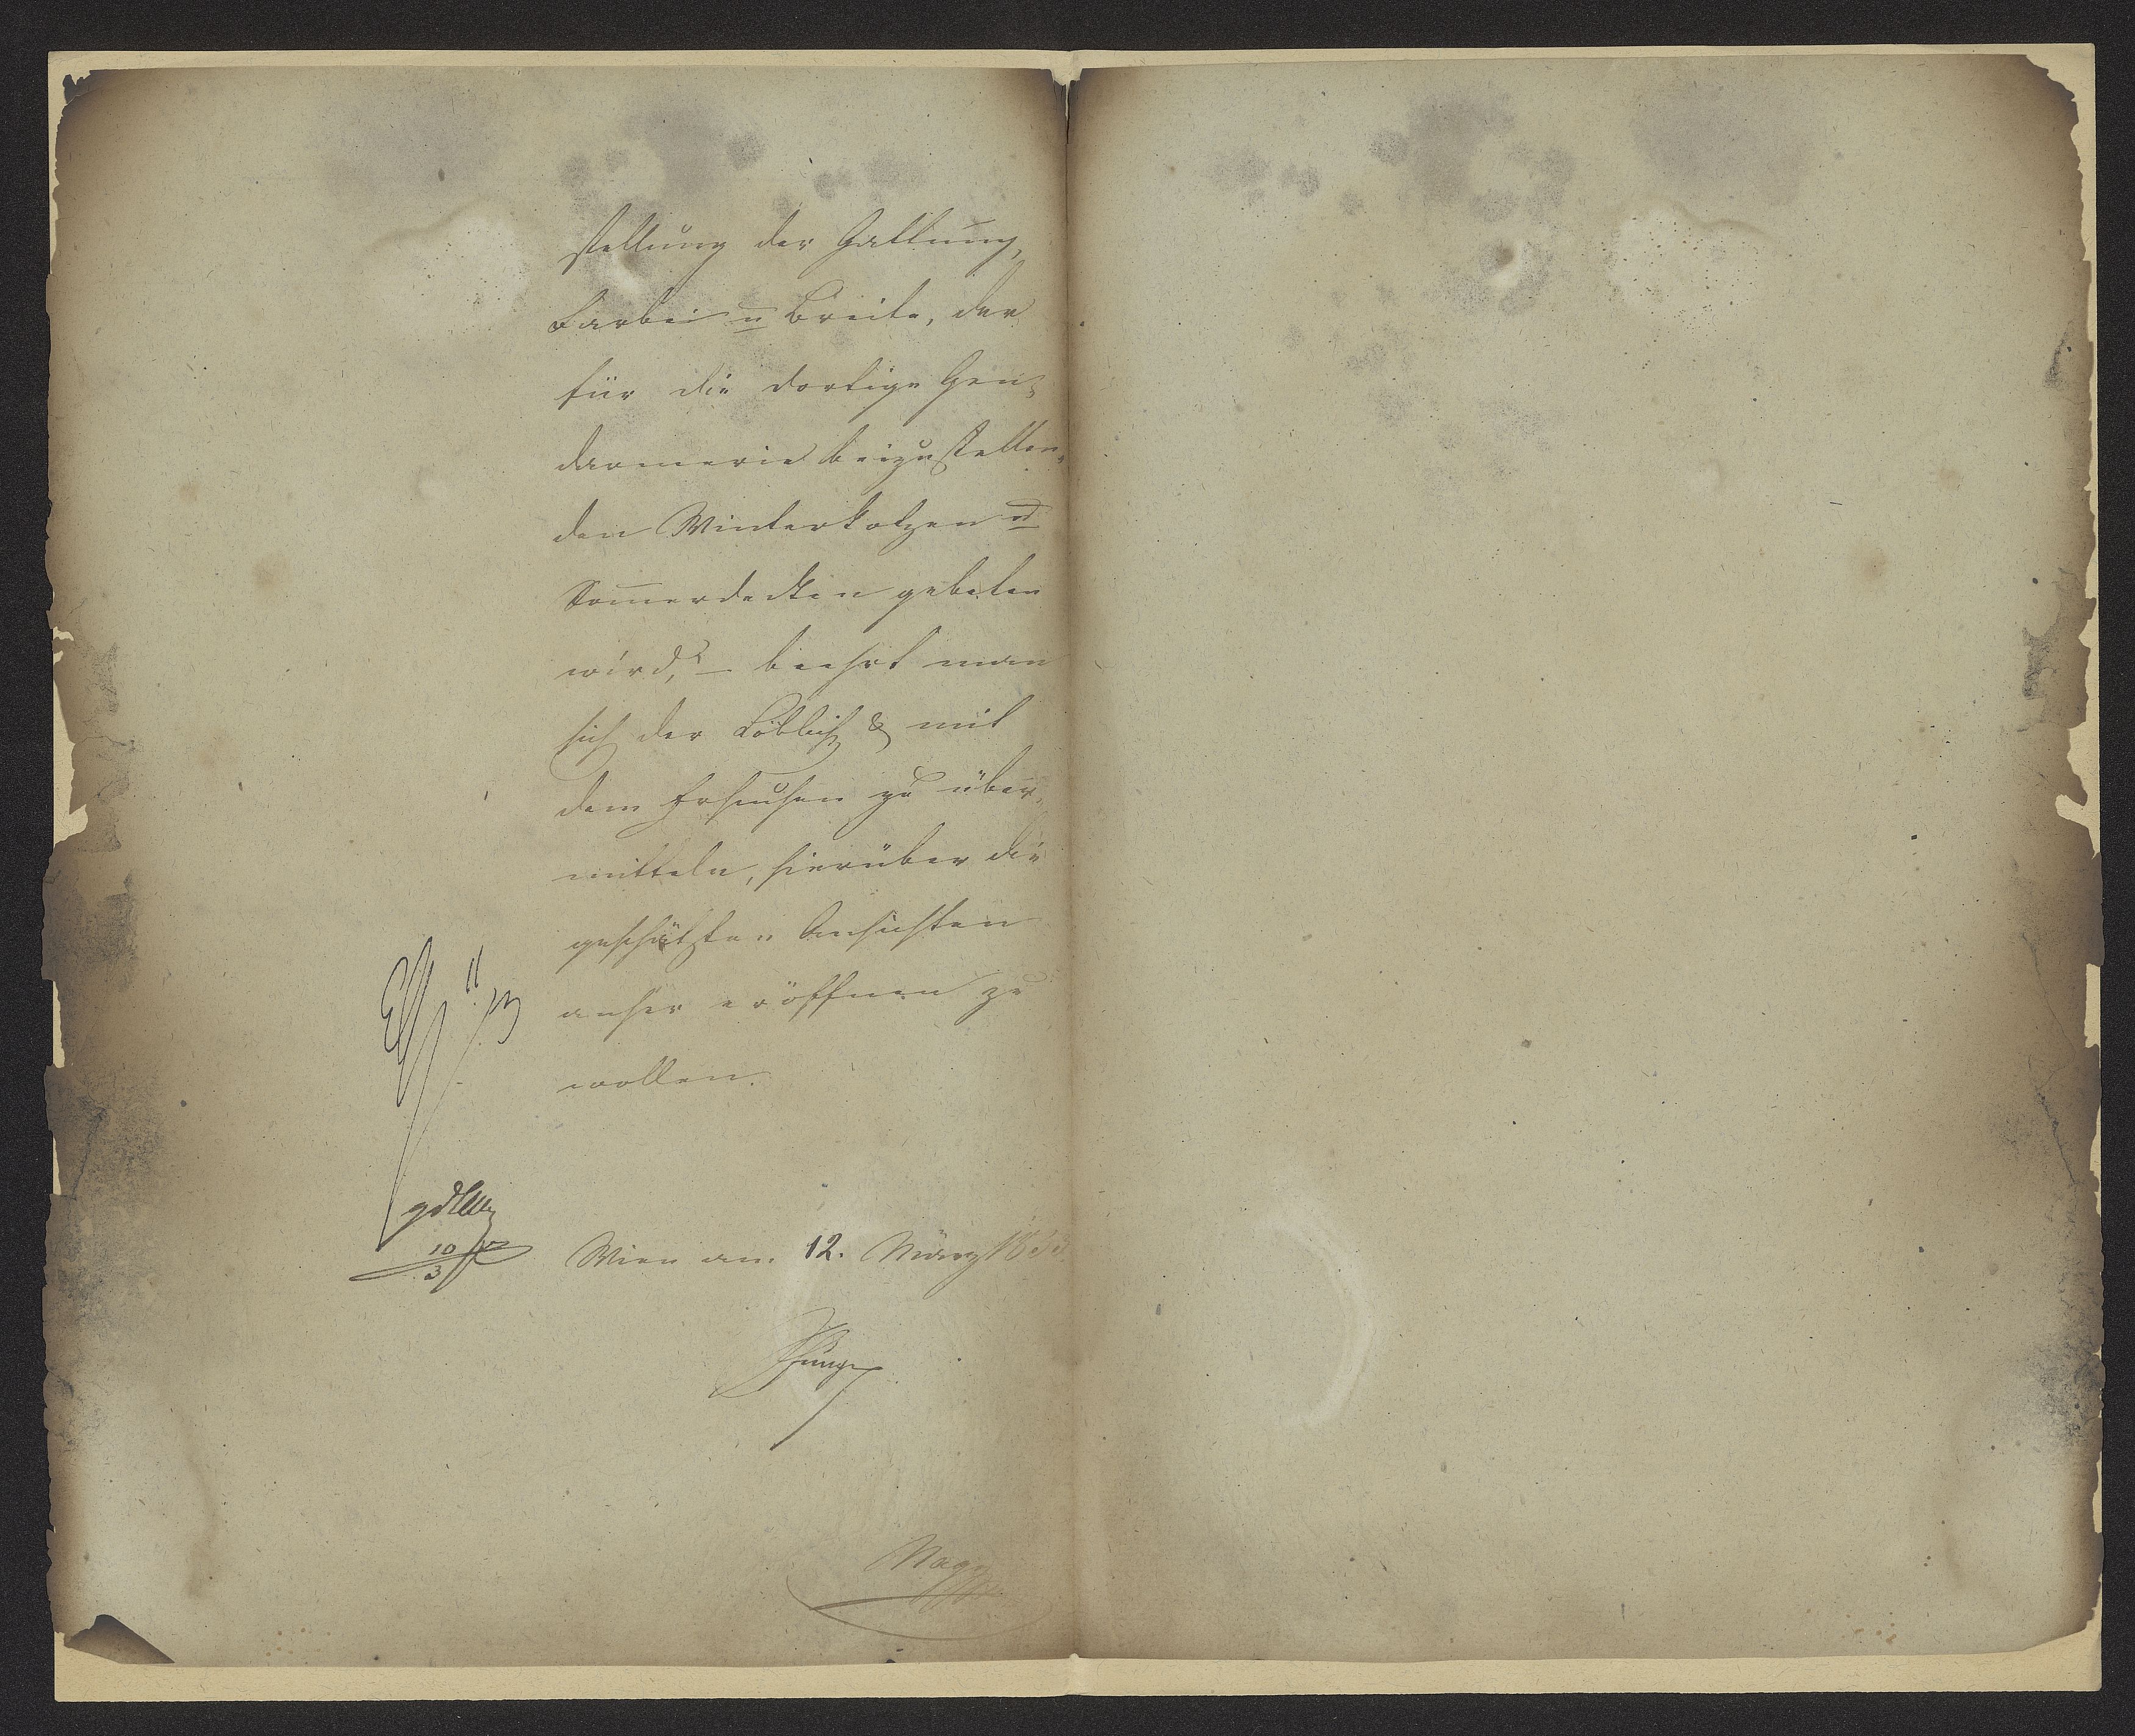 stellung der Gattung,
Farbe u Breite, der
für die dortige Gen¬
darmerie beizustellen¬
den Winterkotzen u
Som̅erdecken gebeten
wird, – beehrt man
sich der Löblich & mit
dem Ersuchen zu über¬
mitteln, hierüber die
geschätzten Ansichten
anher eröffnen zu
wollen.
10/3
Wien am 12. März
Nagy